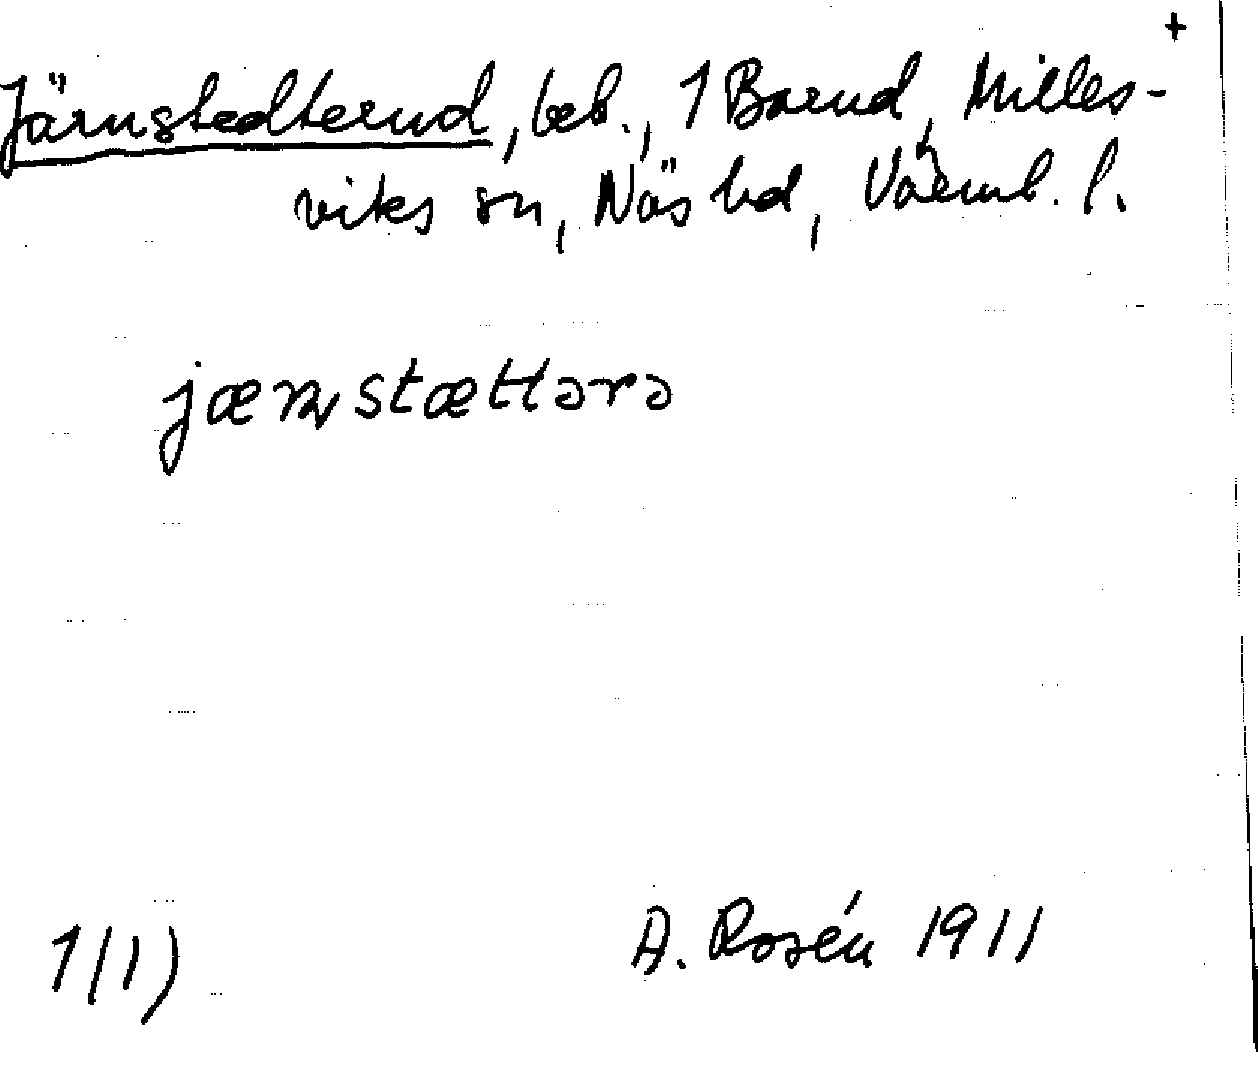 +
Järnstedterud, beb., 1 Borud, Milles-
viks sn, Näs hd, Värml. l.
jæɳstættərə
1/1)
A. Rosén 1911